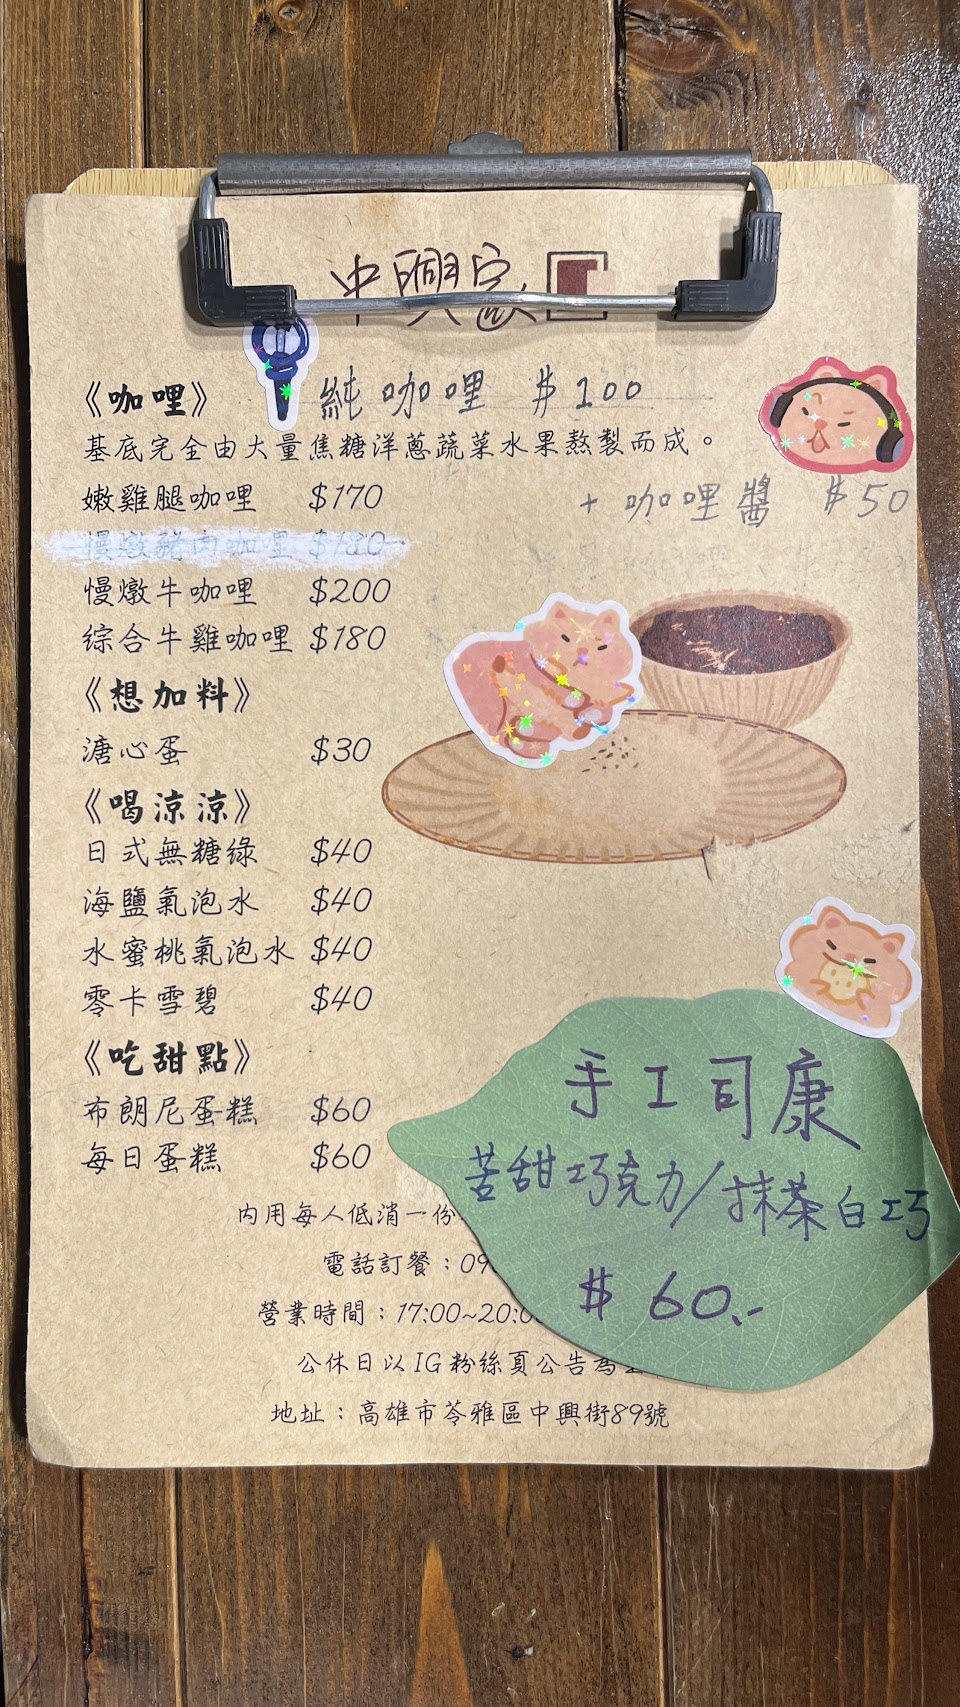 中興家
《咖哩》 純咖哩 $100
基底完全由大量焦糖洋蔥蔬菜水果熬製而成。
嫩雞腿咖哩 $170
+ 咖哩醬 $50
慢燉豬肉咖哩 $180
慢燉牛咖哩 $200
綜合牛雞咖哩 $180
《想加料》
溏心蛋 $30
《喝涼涼》
日式無糖綠 $40
海鹽氣泡水 $40
水蜜桃氣泡水 $40
零卡雪碧 $40
《吃甜點》
布朗尼蛋糕 $60
每日蛋糕 $60
手工司康
苦甜巧克力/抹茶白巧
$60.-
內用每人低消一份
電話訂餐：09
營業時間：17:00~20:0
公休日以IG粉絲頁公告為
地址：高雄市苓雅區中興街89號